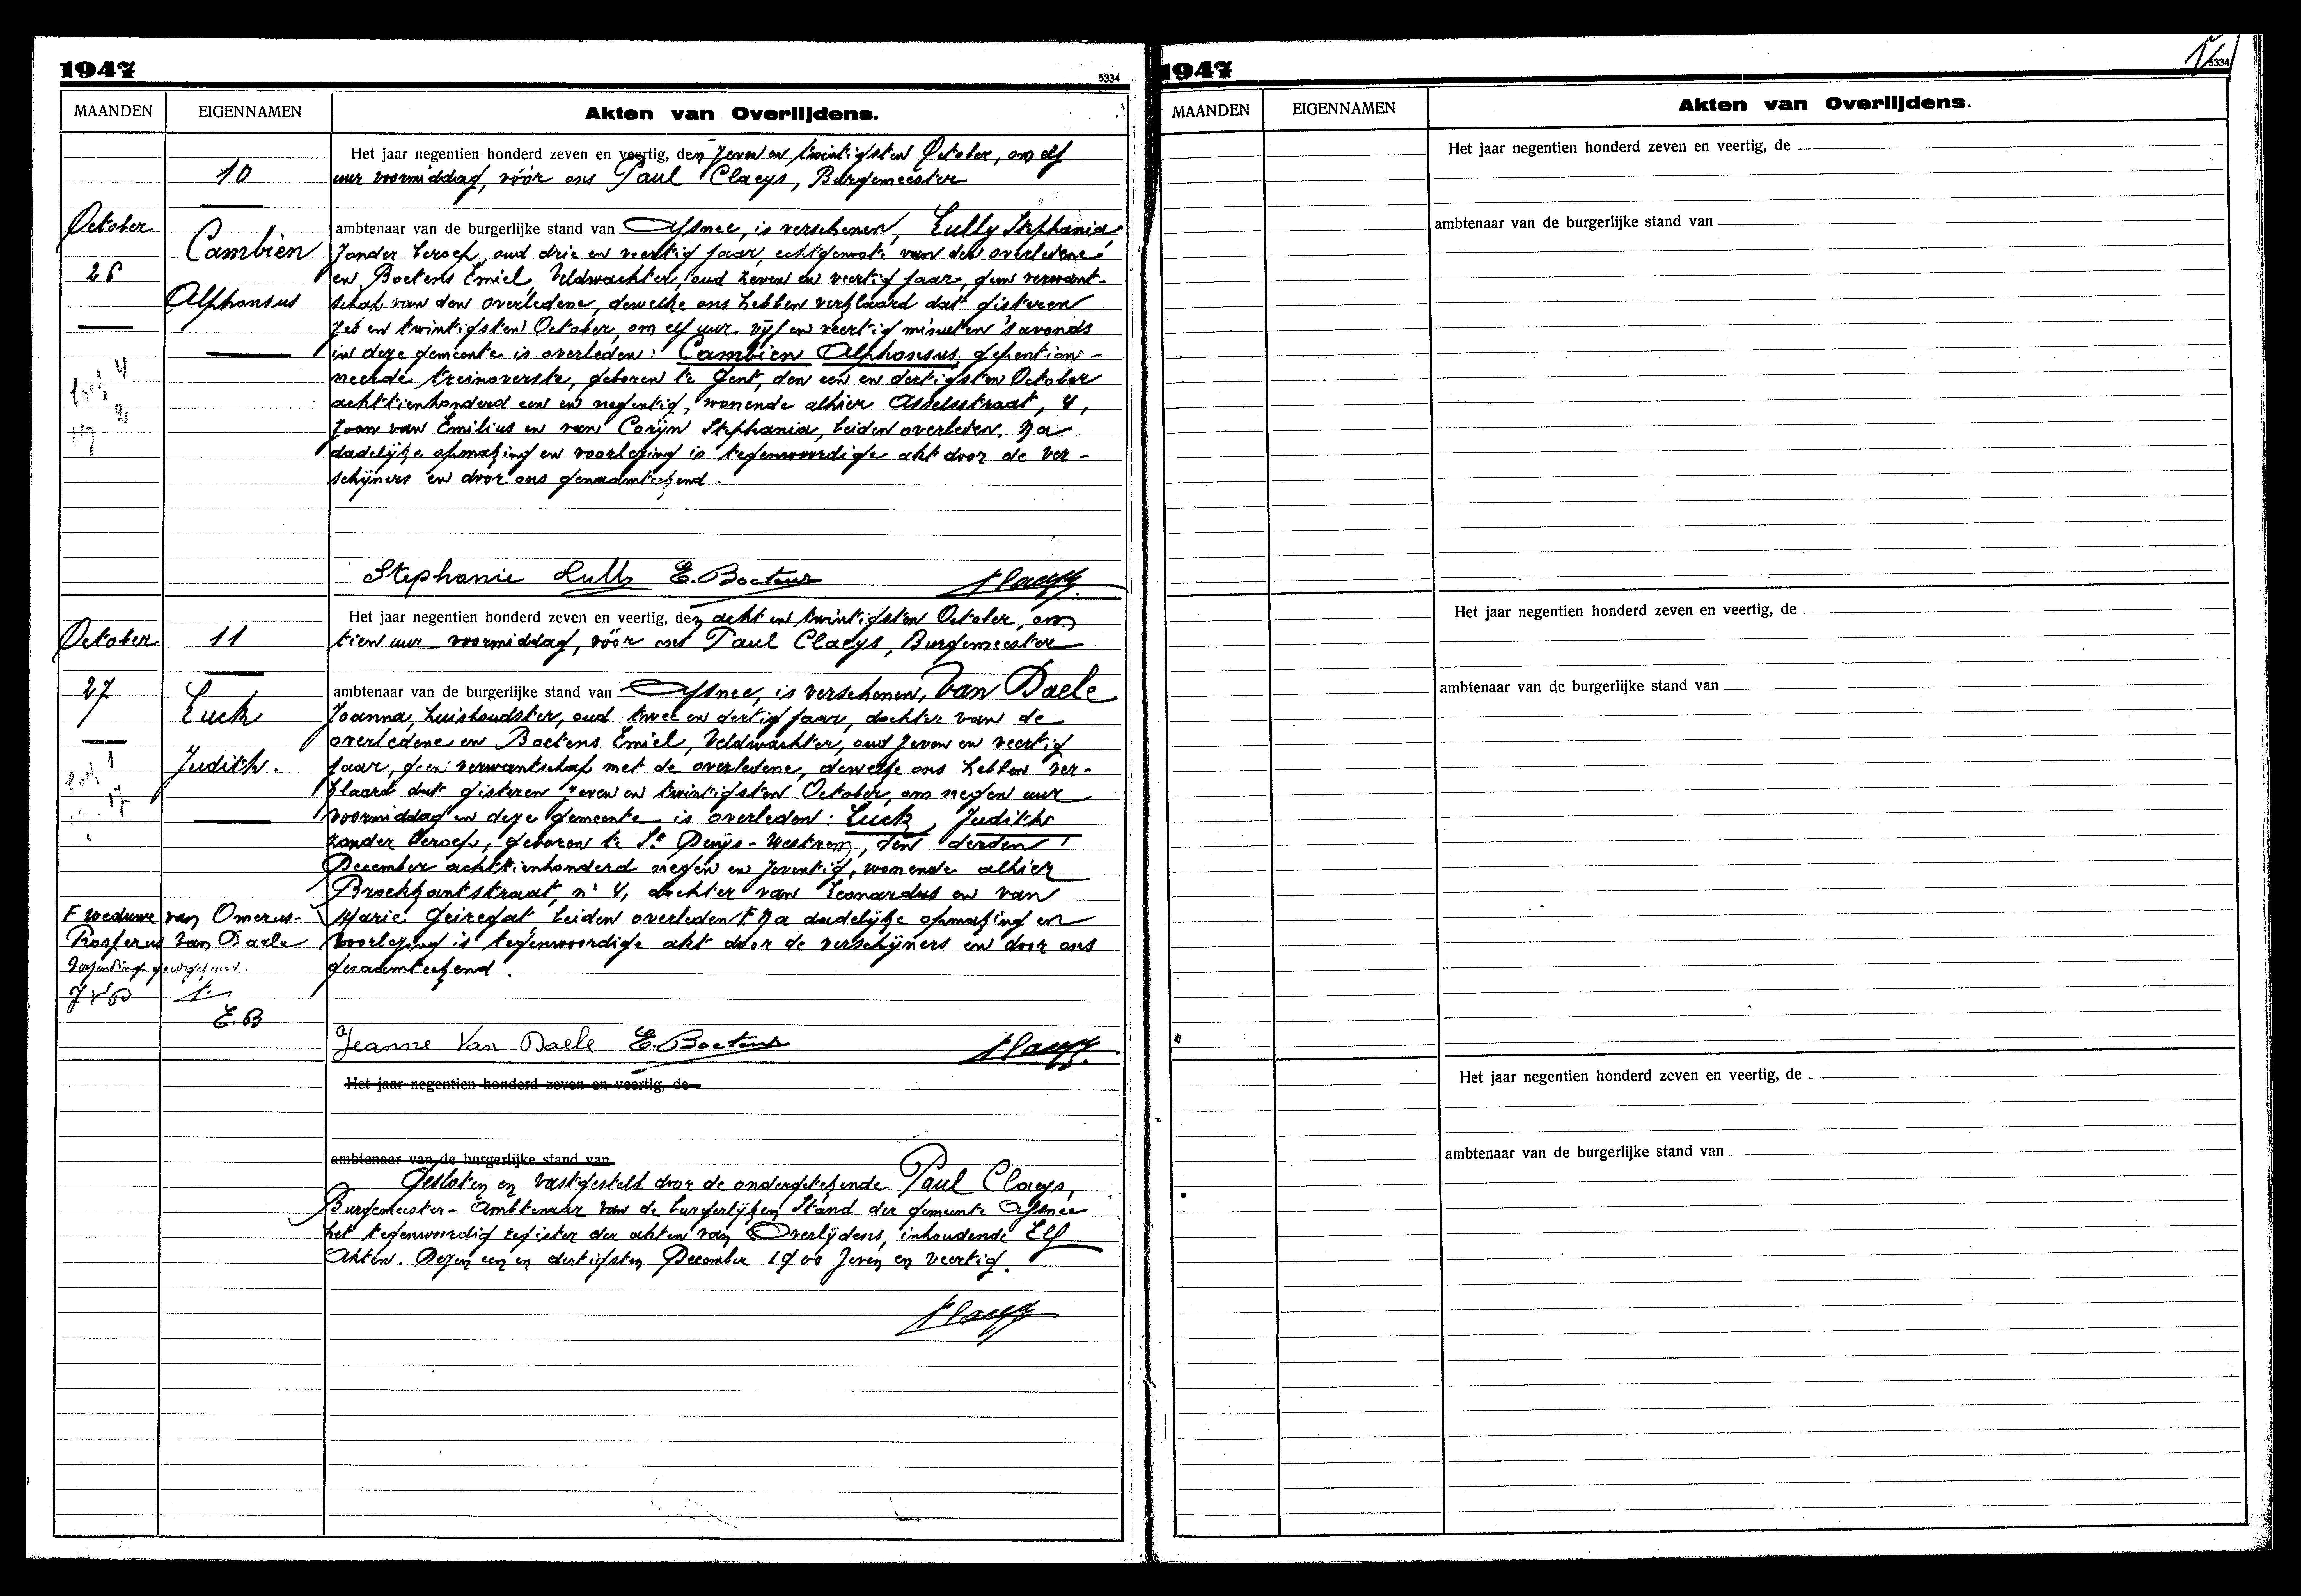 1947
5334
MAANDEN
EIGENNAMEN
Akten van Overlijdens.
10
October
26
Cambien
Alphonsus
Het jaar negentien honderd zeven en veertig, den zeven en twintigsten October, om elf
uur voormiddag, vóór ons Paul Claeys, Burgemeester
ambtenaar van de burgerlijke stand van Afsnee, is verschenen, Lully Stephania
zonder beroep, oud drie en veertig jaar, echtgenote van den overledene
en Boetens Emiel, Veldwachter, oud zeven en veertig jaar, geen verwant-
schap van den overledene, dewelke ons hebben verklaard dat gisteren
zes en twintigsten October, om elf uur vijf en veertig minuten 's avonds
in deze gemeente is overleden: Cambien Alphonsus, gepention-
neerde treinoverste, geboren te Gent, den een en dertigsten October
achttienhonderd een en negentig, wonende alhier Asselsstraat, 4,
zoon van Emilius en van Corijn Stephania, beiden overleden. Na
dadelijke opmaking en voorlezing is tegenwoordige akt door de ver-
schijners en door ons genaamteekend.
Stephanie Lully E. Boetens Claeys
October
27
11
Luck
Judith.
Het jaar negentien honderd zeven en veertig, den acht en twintigsten October, om
tien uur voormiddag, vóór ons Paul Claeys, Burgemeester
ambtenaar van de burgerlijke stand van Afsnee, is verschenen, Van Daele
Joanna, huishoudster, oud twee en dertig jaar, dochter van de
overledene en Boetens Emiel, Veldwachter, oud zeven en veertig
jaar, geen verwantschap met de overledene, dewelke ons hebben ver-
klaard dat gisteren zeven en twintigsten October, om negen uur
voormiddag en deze gemeente is overleden: Luck, Judith
zonder beroep, geboren te St Denijs-Westrem, den derden
December achttienhonderd negen en zeventig, wonende alhier
Broekkantstraat, n: 4, dochter van Leonardus en van
Marie Geiregat, beiden overleden F Na dadelijke opmaking en
voorlezing is tegenwoordige akt door de verschijners en door ons
genaamteekend.
F weduwe van Omerus-
Prosperus Van Daele
Verzending goedgekeurd.
J V D
E. B
Jeanne Van Daele E. Boetens Claeys
Het jaar negentien honderd zeven en veertig, de
ambtenaar van de burgerlijke stand van
Gesloten en vastgesteld door de ondergetekende Paul Claeys,
Burgemeester-Ambtenaar van de burgerlijken Stand der gemeente Afsnee
het tegenwoordig register der akten van Overlijdens, inhoudende Elf
Akten. Dezen een en dertigsten December 1900 zeven en veertig.
Claeys
1947
5334
MAANDEN
EIGENNAMEN
Akten van Overlijdens.
Het jaar negentien honderd zeven en veertig, de
ambtenaar van de burgerlijke stand van
Het jaar negentien honderd zeven en veertig, de
ambtenaar van de burgerlijke stand van
Het jaar negentien honderd zeven en veertig, de
ambtenaar van de burgerlijke stand van